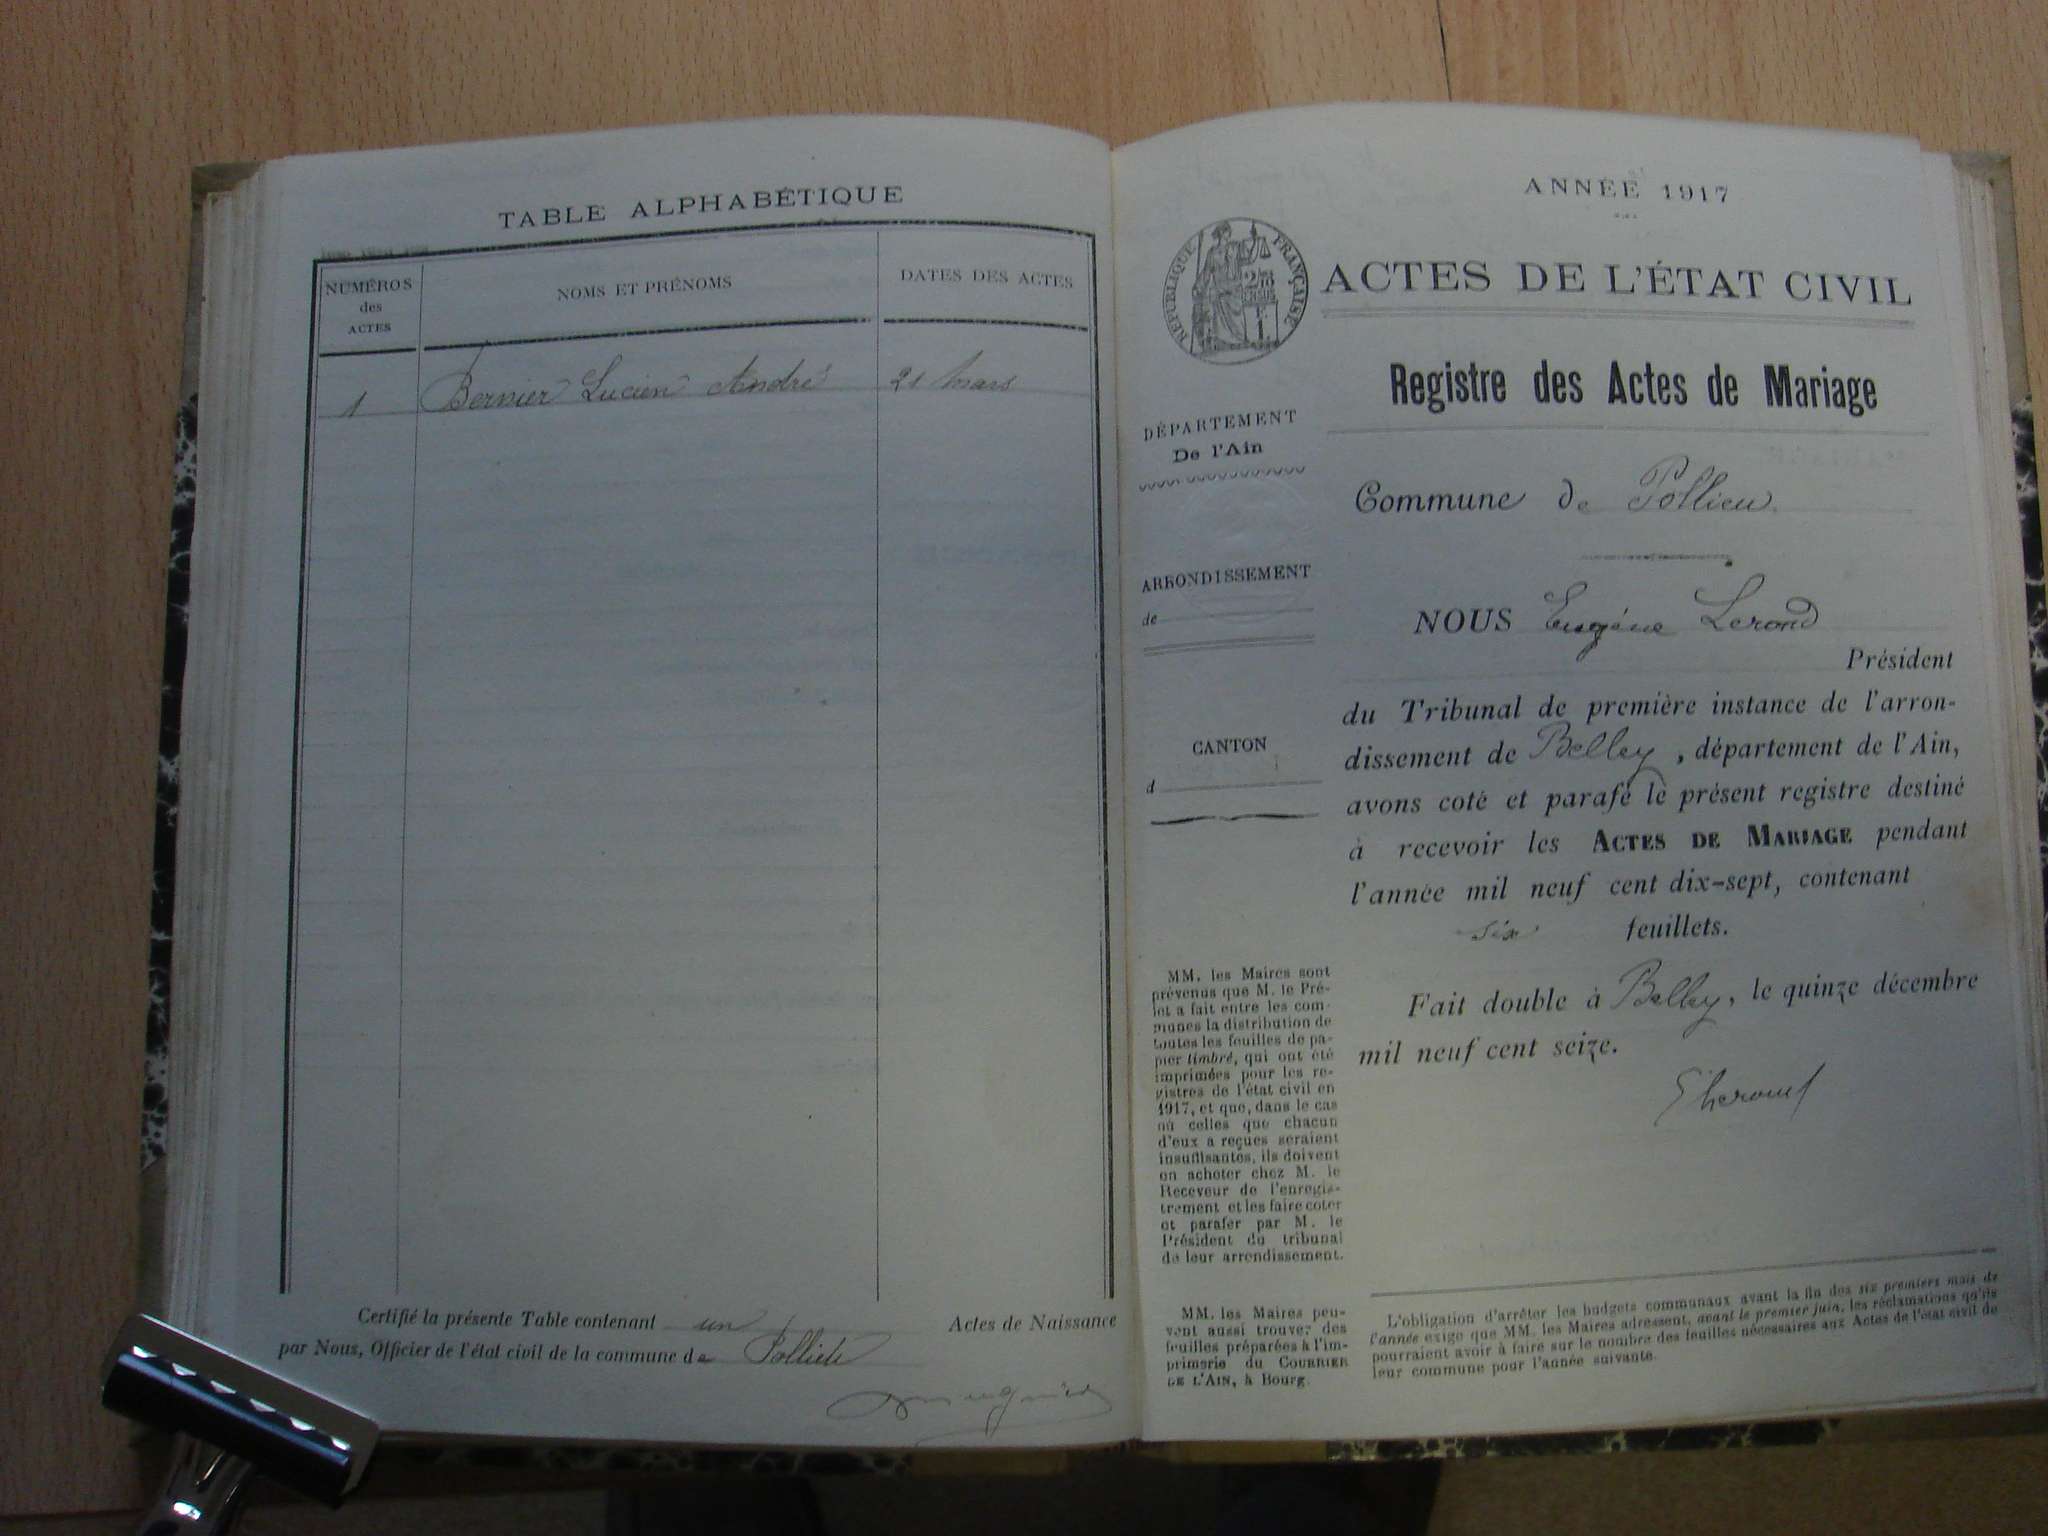 TABLE ALPHABÉTIQUE
NUMÉROS
des
ACTES
NOMS ET PRÉNOMS
DATES DES ACTES
1 Bernier Lucien André 21 mars
Certifié la présente Table contenant un Actes de Naissance
par Nous, Officier de l'état civil de la commune de Pollieu
ANNÉE 1917
RÉPUBLIQUE FRANÇAISE
ACTES DE L'ÉTAT CIVIL
Registre des Actes de Mariage
DÉPARTEMENT
De l'Ain
ARRONDISSEMENT
de
CANTON
d
Commune de Pollieu
NOUS Eugène Lerond
Président
du Tribunal de première instance de l'arron-
dissement de Belley, département de l'Ain,
avons coté et parafé le présent registre destiné
à recevoir les ACTES DE MARIAGE pendant
l'année mil neuf cent dix-sept, contenant
six feuillets.
Fait double à Belley, le quinze décembre
mil neuf cent seize.
MM. les Maires sont
prévenus que M. le Pré-
fet a fait entre les com-
munes la distribution de
toutes les feuilles de pa-
pier timbré, qui ont été
imprimées pour les re-
gistres de l'état civil en
1917, et que, dans le cas
où celles que chacun
d'eux a reçues seraient
insuffisantes, ils doivent
en acheter chez M. le
Receveur de l'enregis-
trement et les faire coter
et parafer par M. le
Président du tribunal
de leur arrondissement.
MM. les Maires peu-
vent aussi trouver des
feuilles préparées à l'im-
primerie du COURRIER
DE L'AIN, à Bourg.
L'obligation d'arrêter les budgets communaux avant la fin des six premiers mois de
l'année exige que MM. les Maires adressent, avant le premier juin, les réclamations qu'ils
pourraient avoir à faire sur le nombre des feuilles nécessaires aux Actes de l'état civil de
leur commune pour l'année suivante.